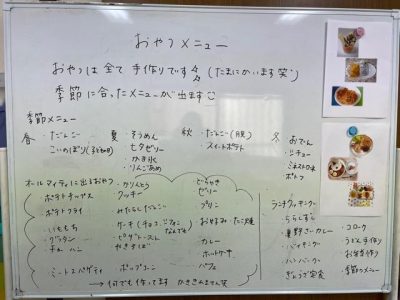 おやつメニュー
おやつは全て手作りです (たまにかいます笑)
季節に合ったメニューが出ます
季節メニュー
春 ・だんご
こいのぼり(子供の日)
夏 ・そうめん
七夕ゼリー
かき氷
りんごあめ
秋 ・だんご(月見)
・スイートポテト
冬 おでん
シチュー
ミネストローネ
ポトフ
オールマイティに出るおやつ
ポテトチップス
ポテトフライ
・いももち
・グラタン
・チャーハン
・ミートスパゲティ
・かりんとう
クッキー
・みたらしだんご
・ケーキ(チョコ、シフォン なんでも)
・ピザトースト
やきそば
・ポップコーン
・どらやき
ゼリー
・プリン
・お好み・たこ焼
・カレー
・ホットケーキ
・パフェ
→何でも作ってます かききれません笑
ランチクッキング
・ちらしずし
・夏野さいカレー
・バイキング
・ハンバーグ
・ぎょうざ定食
・コロッケ
・うどん手作り
・お弁当作り
・季節のメニュー